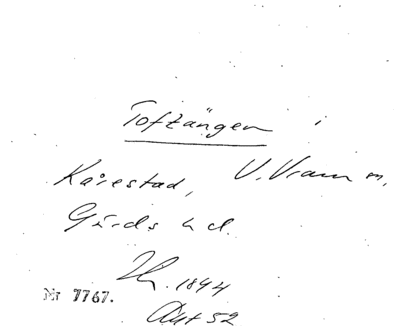 Toftängen i
Kårestad, V. Vram m,
Gärds hd.
1844
Nr 7767.
Akt 52